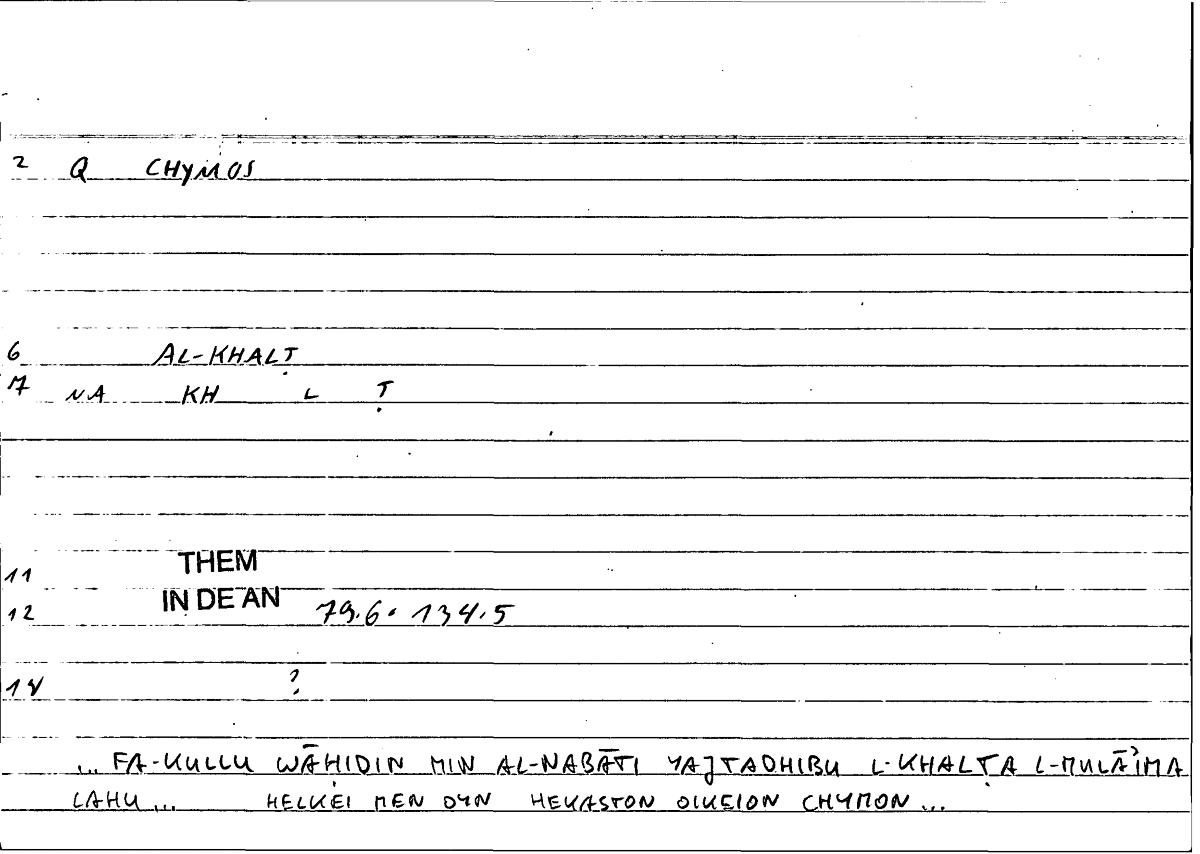 2 Q CHYMOS
6 AL-KHALṬ
7 NA KH L Ṭ
11 THEM
12 IN DE AN 79.6. 134.5
14 ?
... FA-KULLU WĀHIDIN MIN AL-NABĀTI YAJTADHIBU L-KHALṬA L-MULĀ'IMA
LAHU ... HELKEI MEN OYN HEKASTON OIKEION CHYMON ...